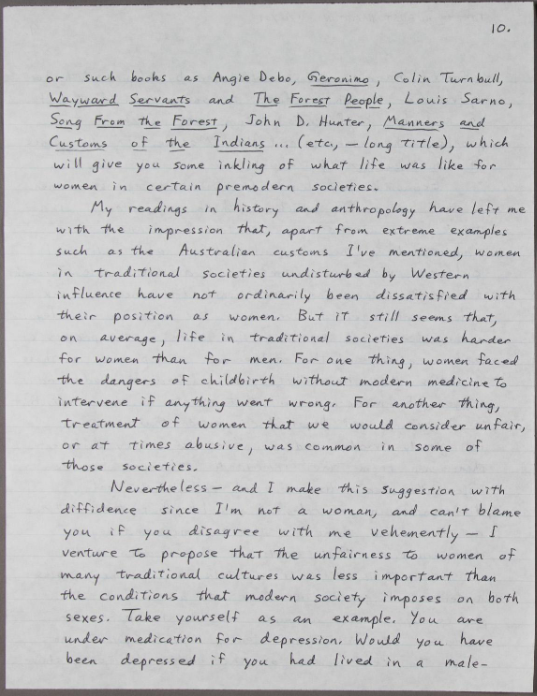 10.
or such books as Angie Debo, Geronimo, Colin Turnbull,
Wayward Servants and The Forest People, Louis Sarno,
Song From the Forest, John D. Hunter, Manners and
Customs of the Indians ... (etc, — long title), which
will give you some inkling of what life was like for
women in certain premodern societies.
My readings in history and anthropology have left me
with the impression that, apart from extreme examples
such as the Australian customs I've mentioned, women
in traditional societies undisturbed by Western
influence have not ordinarily been dissatisfied with
their position as women. But it still seems that,
on average, life in traditional societies was harder
for women than for men. For one thing, women faced
the dangers of childbirth without modern medicine to
intervene if anything went wrong. For another thing,
treatment of women that we would consider unfair,
or at times abusive, was common in some of
those societies.
Nevertheless — and I make this suggestion with
diffidence since I'm not a woman, and can't blame
you if you disagree with me vehemently — I
venture to propose that the unfairness to women of
many traditional cultures was less important than
the conditions that modern society imposes on both
sexes. Take yourself as an example. You are
under medication for depression. Would you have
been depressed if you had lived in a male-